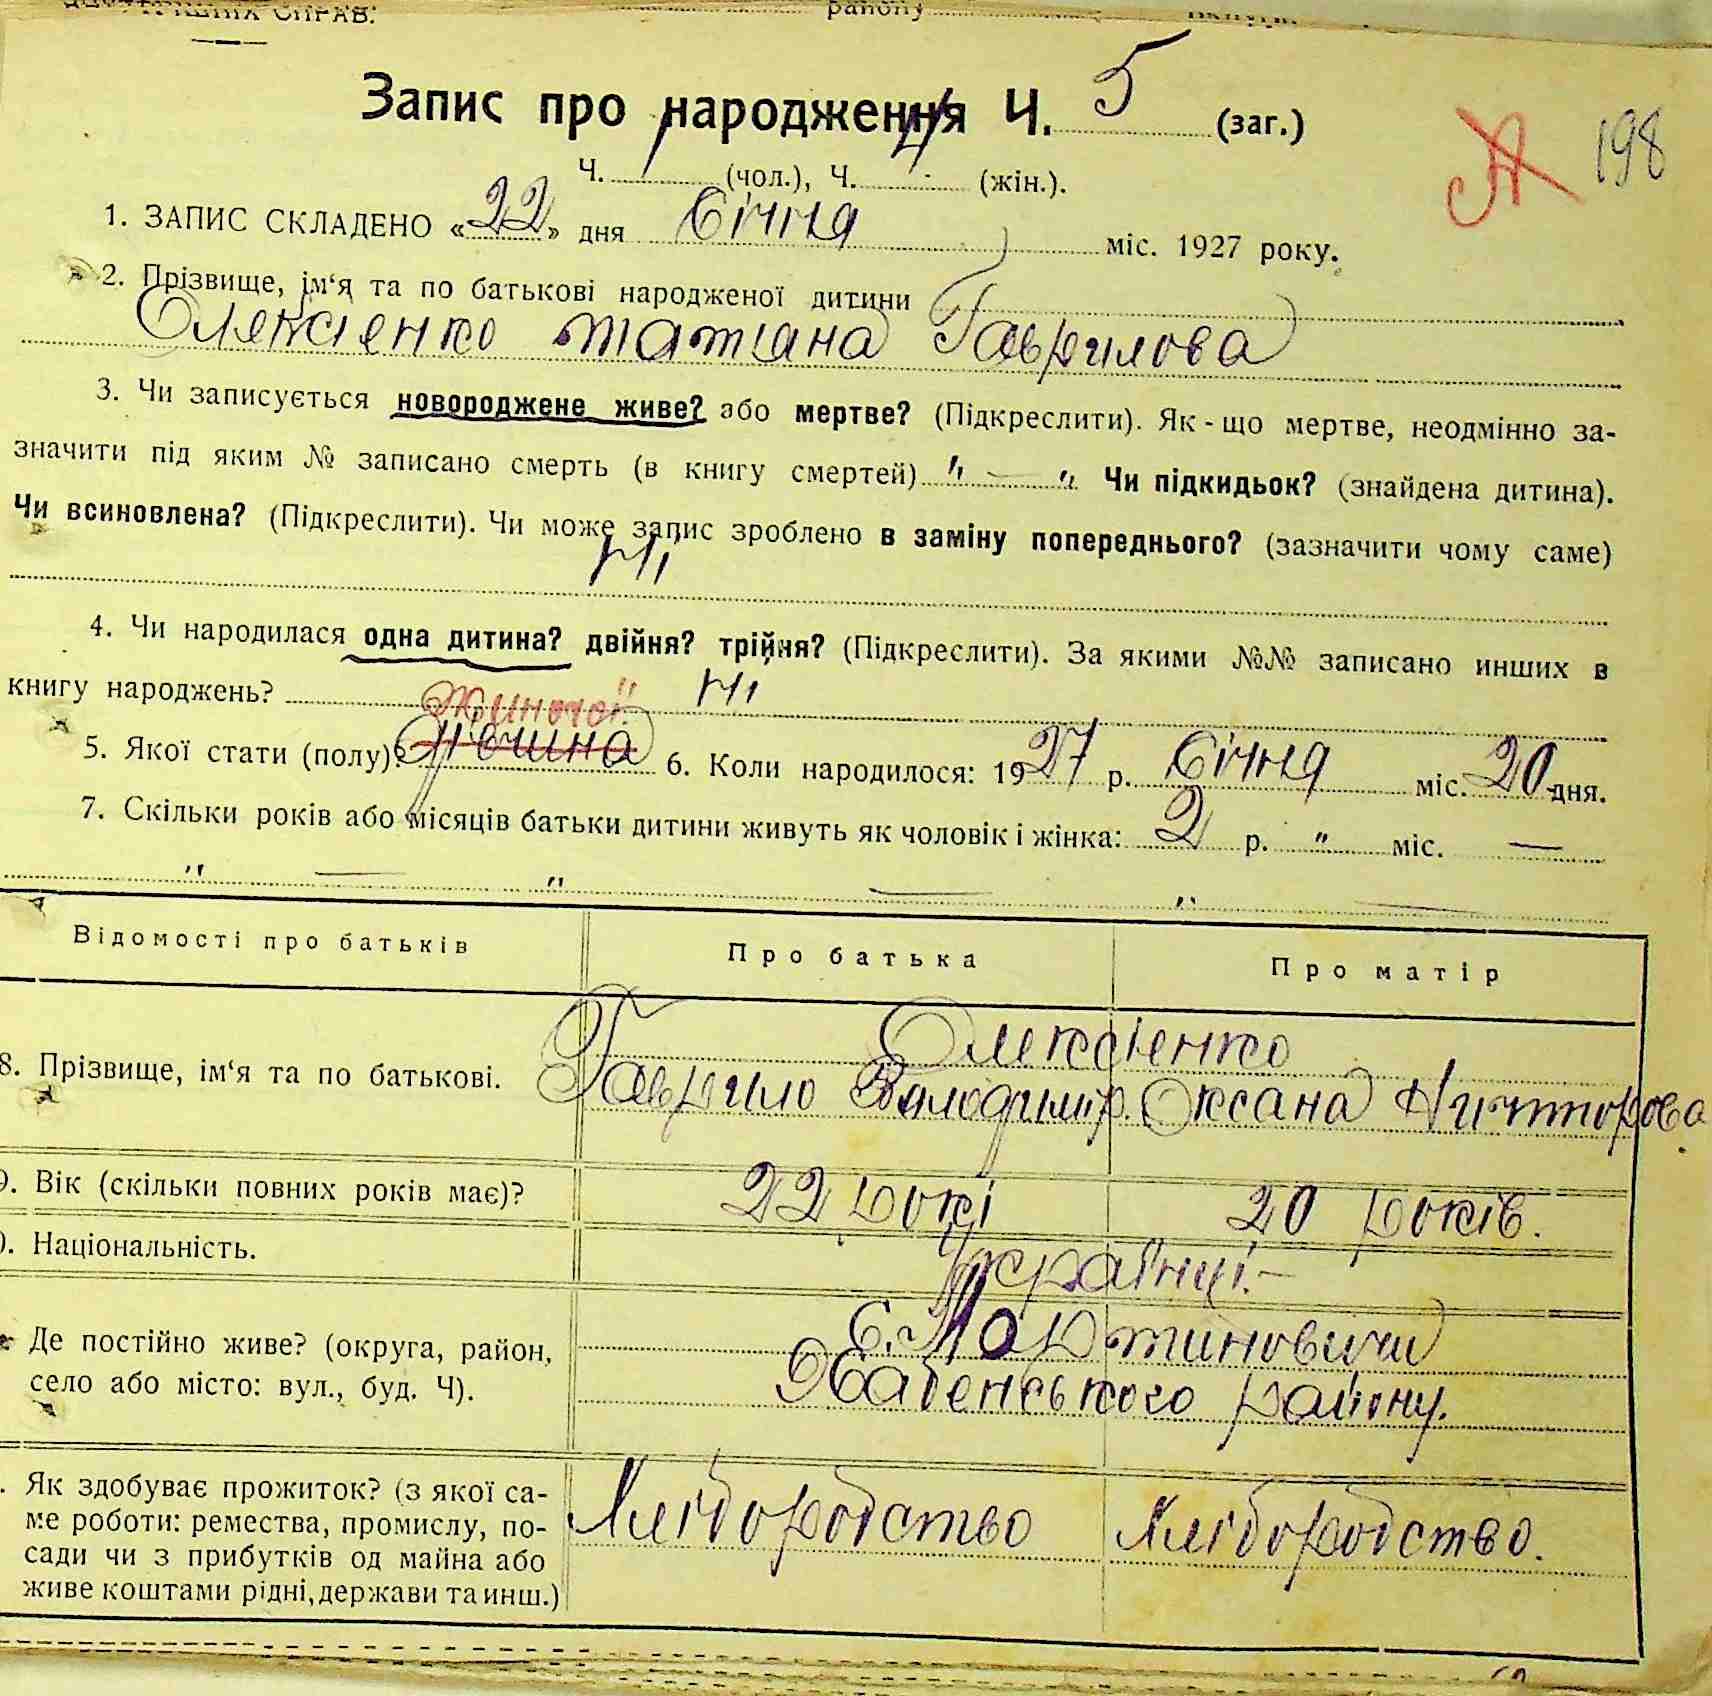 району
Запис про народження Ч. 5 (заг.)
198
Ч. 1 (чол.), Ч. 4 (жін.).
1. ЗАПИС СКЛАДЕНО «22» дня Січня міс. 1927 року.
2. Прізвище, ім‘я та по батькові народженої дитини
Олексієнко Татіана Гаврилова
3. Чи записується новороджене живе? або мертве? (Підкреслити). Як-що мертве, неодмінно за-
значити під яким № записано смерть (в книгу смертей) " — " Чи підкидьок? (знайдена дитина).
Чи всиновлена? (Підкреслити). Чи може запис зроблено в заміну попереднього? (зазначити чому саме)
Ні
4. Чи народилася одна дитина? двійня? трійня? (Підкреслити). За якими №№ записано инших в
книгу народжень? Ні
Жиночої
5. Якої стати (полу)? Дівчина 6. Коли народилося: 1927 р. Січня міс. 20 дня.
7. Скільки років або місяців батьки дитини живуть як чоловік і жінка: 2 р. " міс. —
" — " — " —
Відомості про батьків Про батька Про матір
8. Прізвище, ім‘я та по батькові. Олексієнко
Гаврило Володимір. Оксана Ничипорова
9. Вік (скільки повних років має)? 22 рокі 20 років.
). Національність. Українці.—
Де постійно живе? (округа, район, С. Мартиновичи
село або місто: вул., буд. Ч). Хабенського району.
. Як здобуває прожиток? (з якої са-
ме роботи: ремества, промислу, по- Хліборобство Хліборобство.
сади чи з прибутків од майна або
живе коштами рідні, держави та инш.)